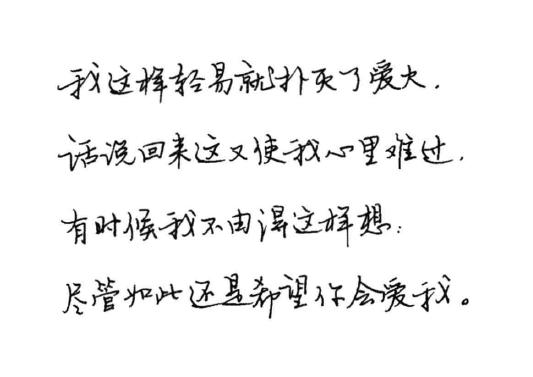 我这样轻易就扑灭了爱火.
话说回来这又使我心里难过.
有时候我不由得这样想:
尽管如此还是希望你会爱我。